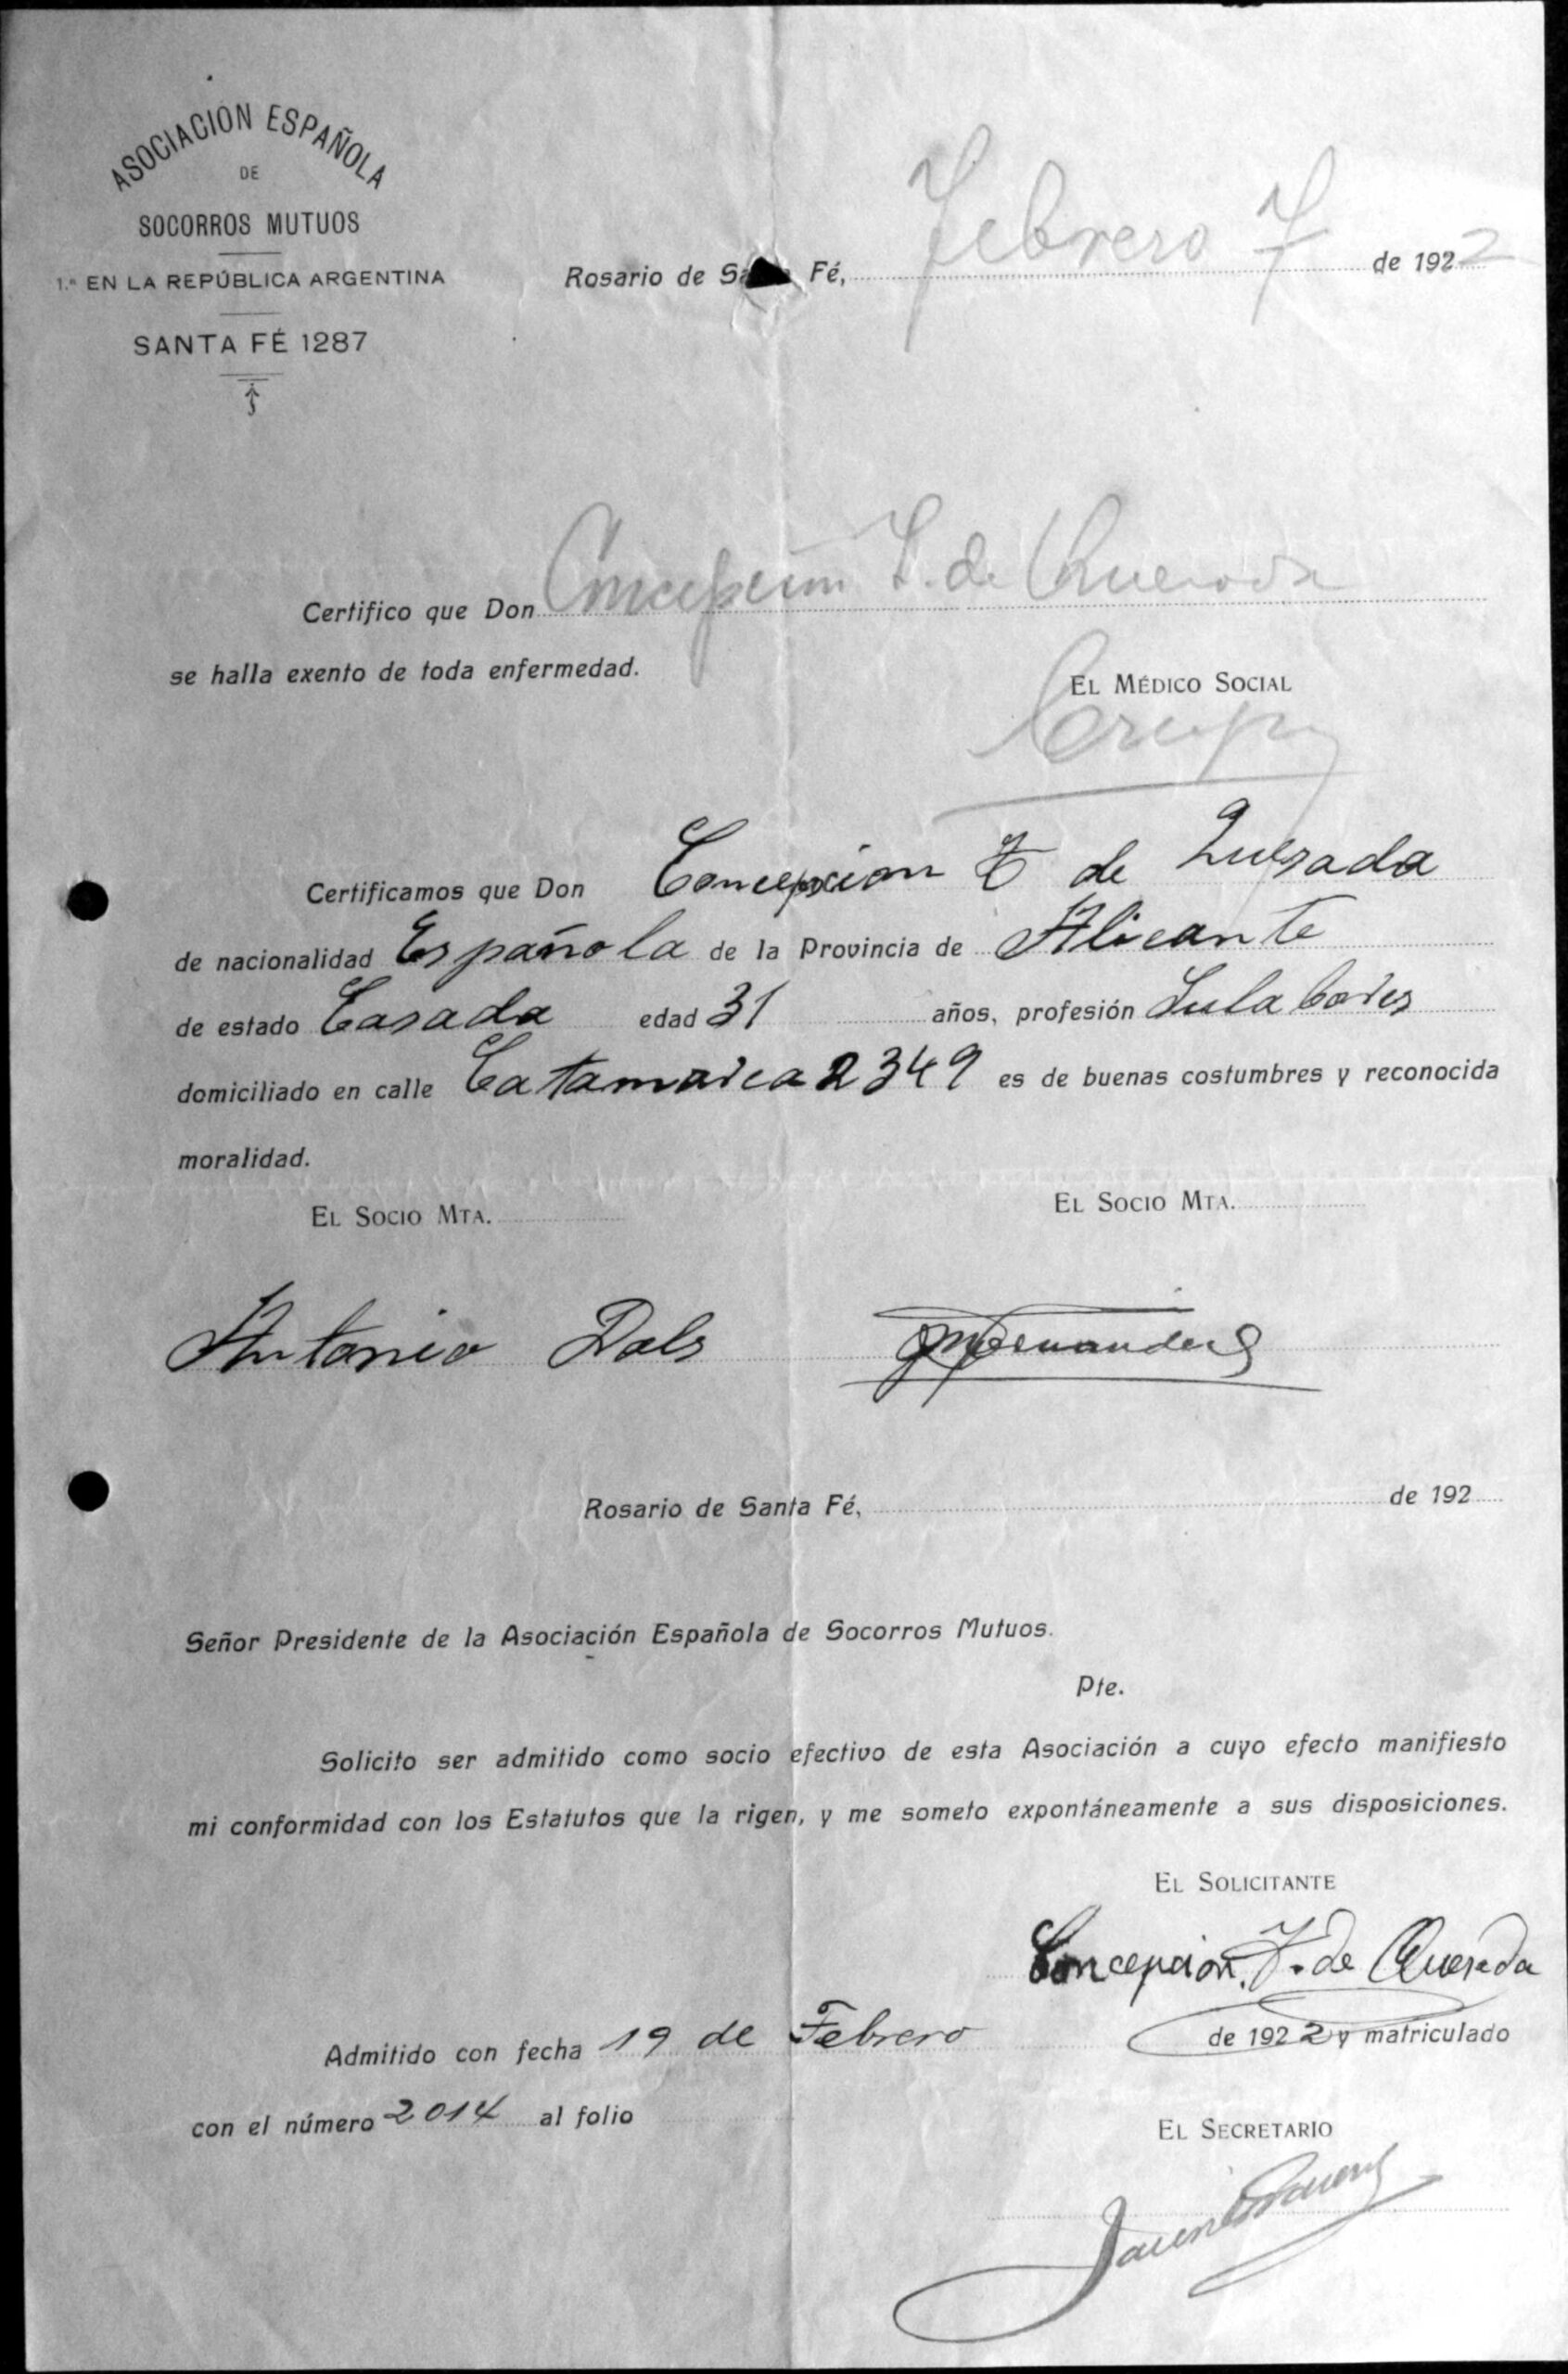 ASOCIACION ESPAÑOLA
DE
SOCORROS MUTUOS
1.ª EN LA REPÚBLICA ARGENTINA
SANTA FÉ 1287
Rosario de Sa Fé, Febrero 7 de 1922
Certifico que Don Concepcion de
se halla exento de toda enfermedad.
EL MÉDICO SOCIAL
Certificamos que Don Concepcion de Quesada
de nacionalidad Española de la Provincia de Alicante
de estado Casada edad 31 años, profesión Sulabores
domiciliado en calle Catamarca 2349 es de buenas costumbres y reconocida
moralidad.
EL SOCIO MTA. EL SOCIO MTA.
Antonio Fernandez
Rosario de Santa Fé, de 192
Señor Presidente de la Asociación Española de Socorros Mutuos.
Pte.
Solicito ser admitido como socio efectivo de esta Asociación a cuyo efecto manifiesto
mi conformidad con los Estatutos que la rigen, y me someto expontáneamente a sus disposiciones.
EL SOLICITANTE
Concepcion de Quesada
Admitido con fecha 19 de Febrero de 1922 y matriculado
con el número 2014 al folio
EL SECRETARIO